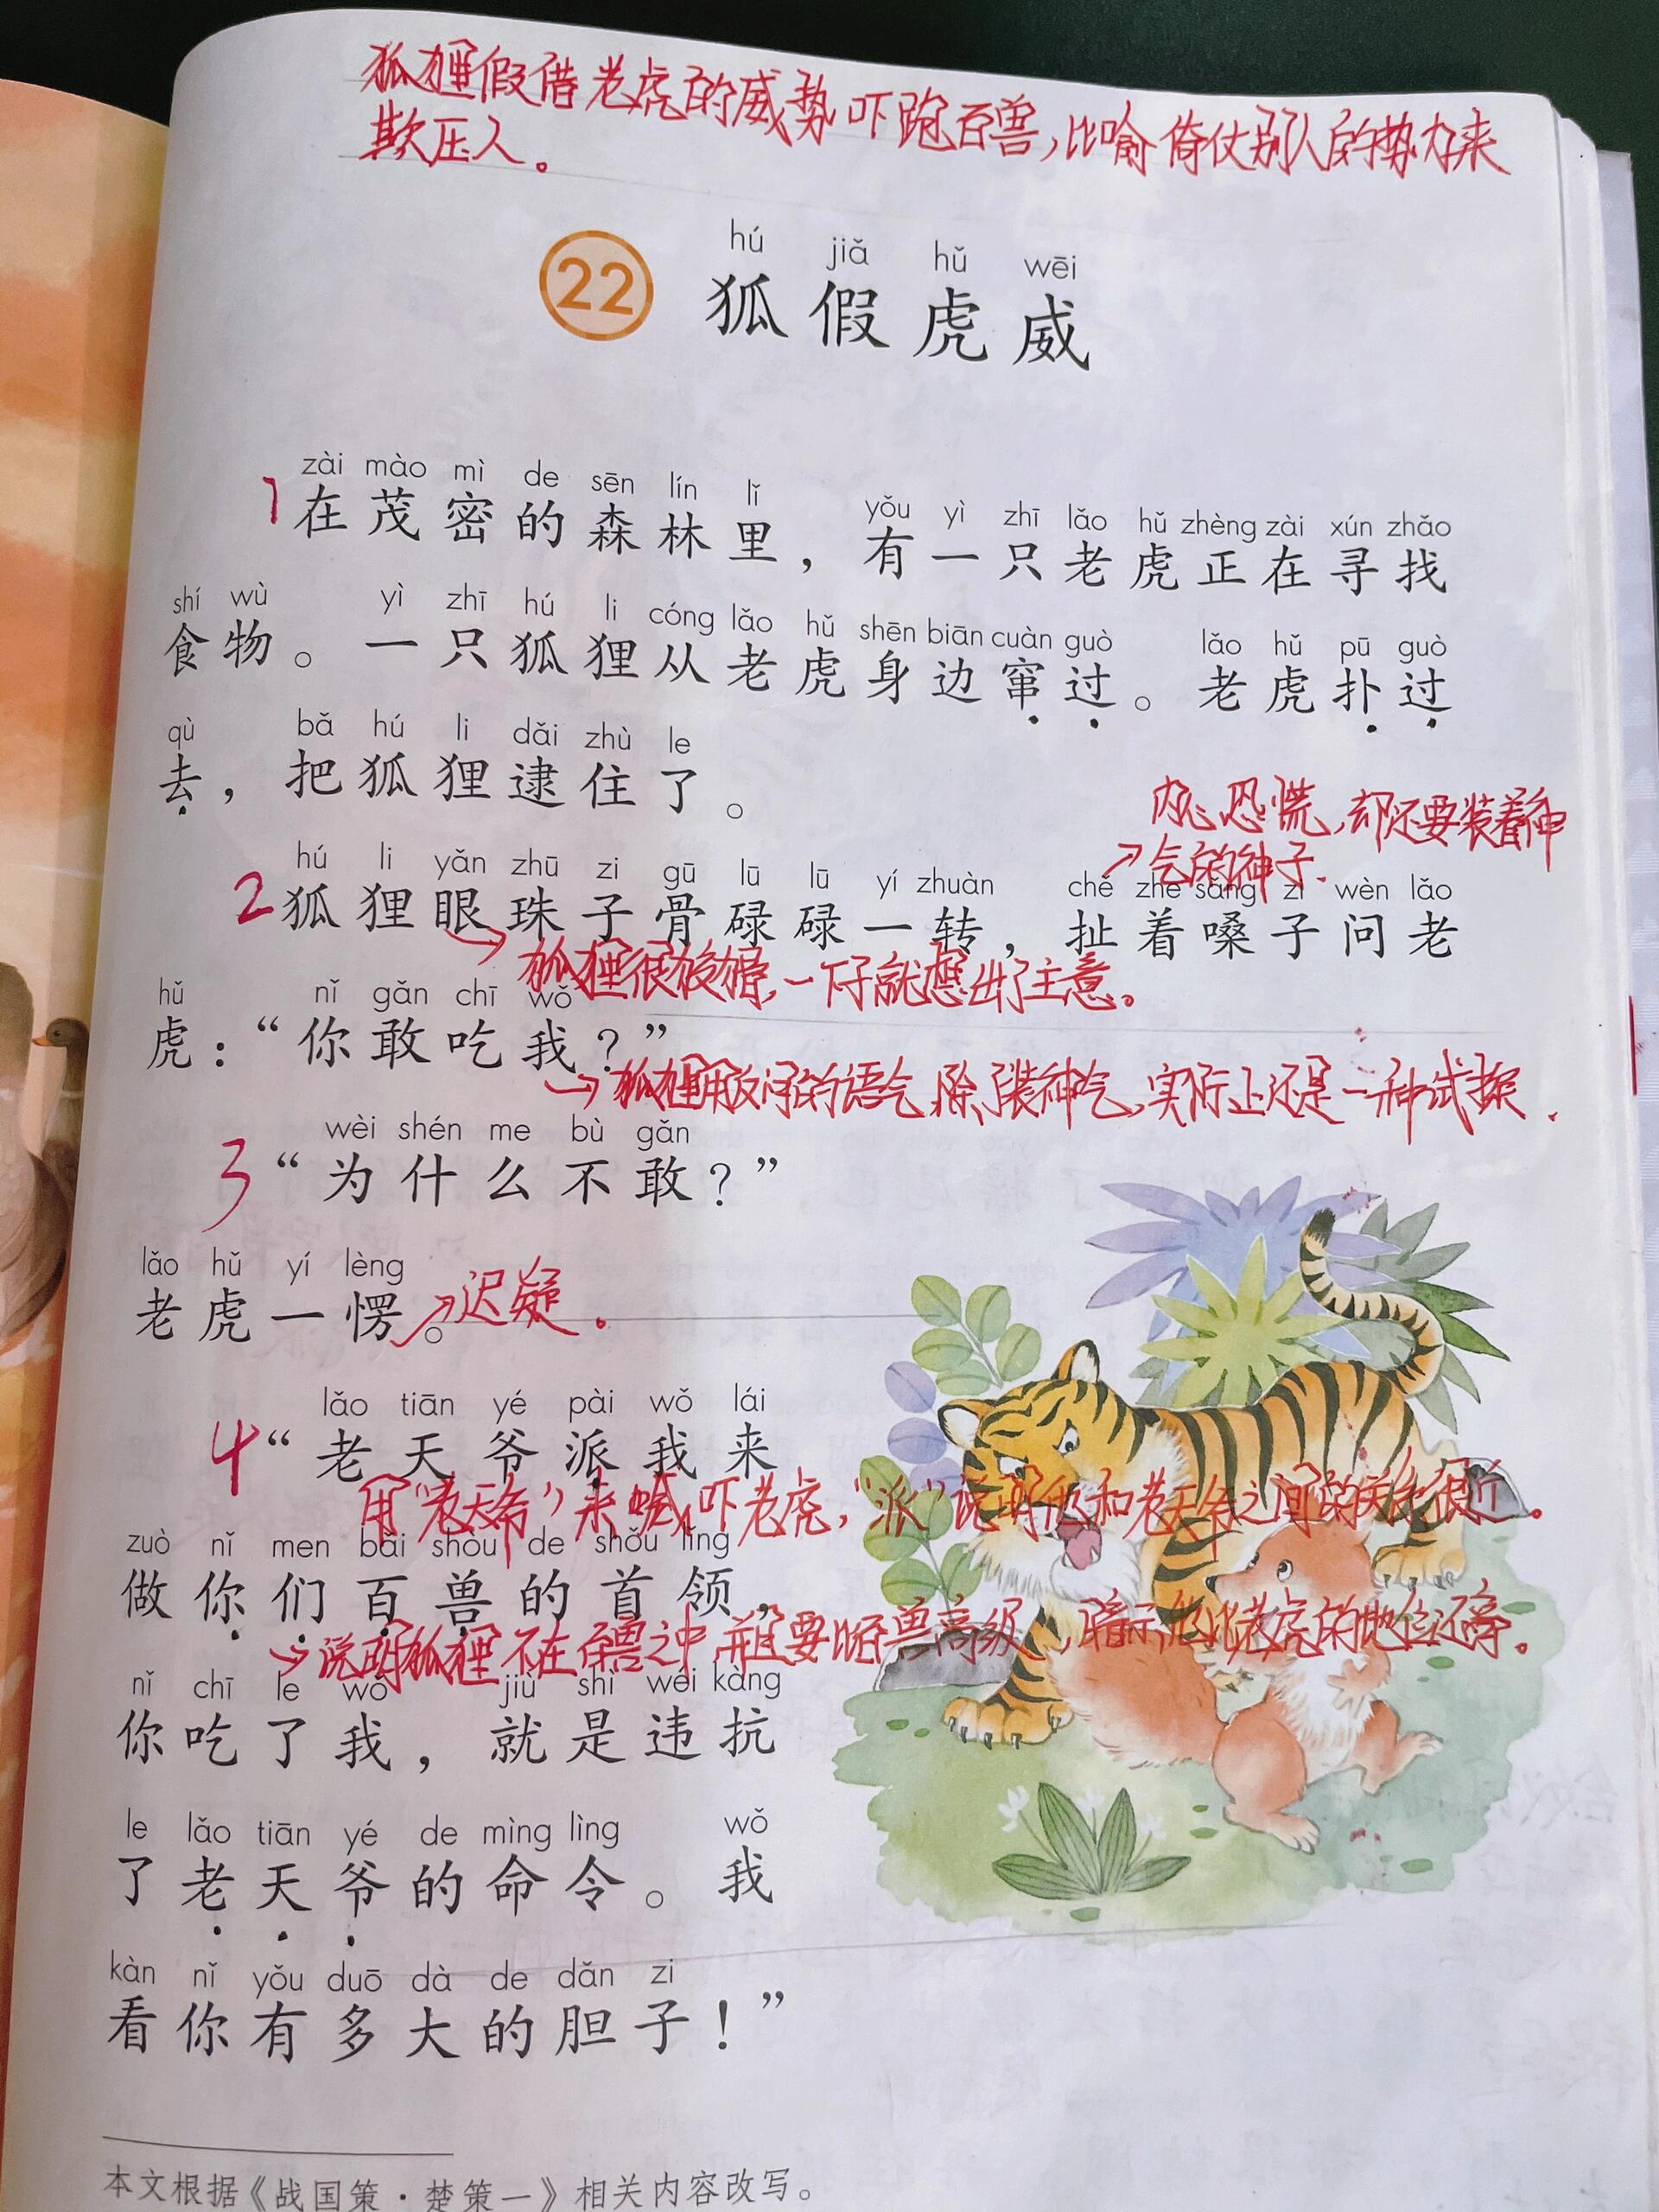 狐狸假借老虎的威势吓跑百兽,比喻倚仗别人的势力来
欺压人。
hú jiǎ hǔ wēi
22 狐假虎威
zài mào mì de sēn lín lǐ yǒu yì zhī lǎo hǔ zhèng zài xún zhǎo
1 在茂密的森林里，有一只老虎正在寻找
shí wù yì zhī hú li cóng lǎo hǔ shēn biān cuàn guò lǎo hǔ pū guò
食物。一只狐狸从老虎身边窜过。老虎扑过
qù bǎ hú li dǎi zhù le
去，把狐狸逮住了。
内心恐慌,却还要装着神
→气的种子.
hú li yǎn zhū zi gū lū lū yí zhuàn chě zhe sǎng zi wèn lǎo
2 狐狸眼珠子骨碌碌一转，扯着嗓子问老
→狐狸很狡猾,一下子就想出了主意。
hǔ nǐ gǎn chī wǒ
虎：“你敢吃我？”
→狐狸用反问的语气,除了装神气,实际上还是一种试探.
wèi shén me bù gǎn
3 “为什么不敢？”
lǎo hǔ yí lèng
老虎一愣。→迟疑。
lǎo tiān yé pài wǒ lái
4 “老天爷派我来
用“老天爷”来喊吓老虎,“派”说明他和老天爷之间的关系很近。
zuò nǐ men bǎi shòu de shǒu lǐng
做你们百兽的首领，
→说明狐狸不在百兽之中,并且要比百兽高级,暗示他比老虎的地位还高。
nǐ chī le wǒ jiù shì wéi kàng
你吃了我，就是违抗
le lǎo tiān yé de mìng lìng wǒ
了老天爷的命令。我
kàn nǐ yǒu duō dà de dǎn zi
看你有多大的胆子！”
本文根据《战国策·楚策一》相关内容改写。